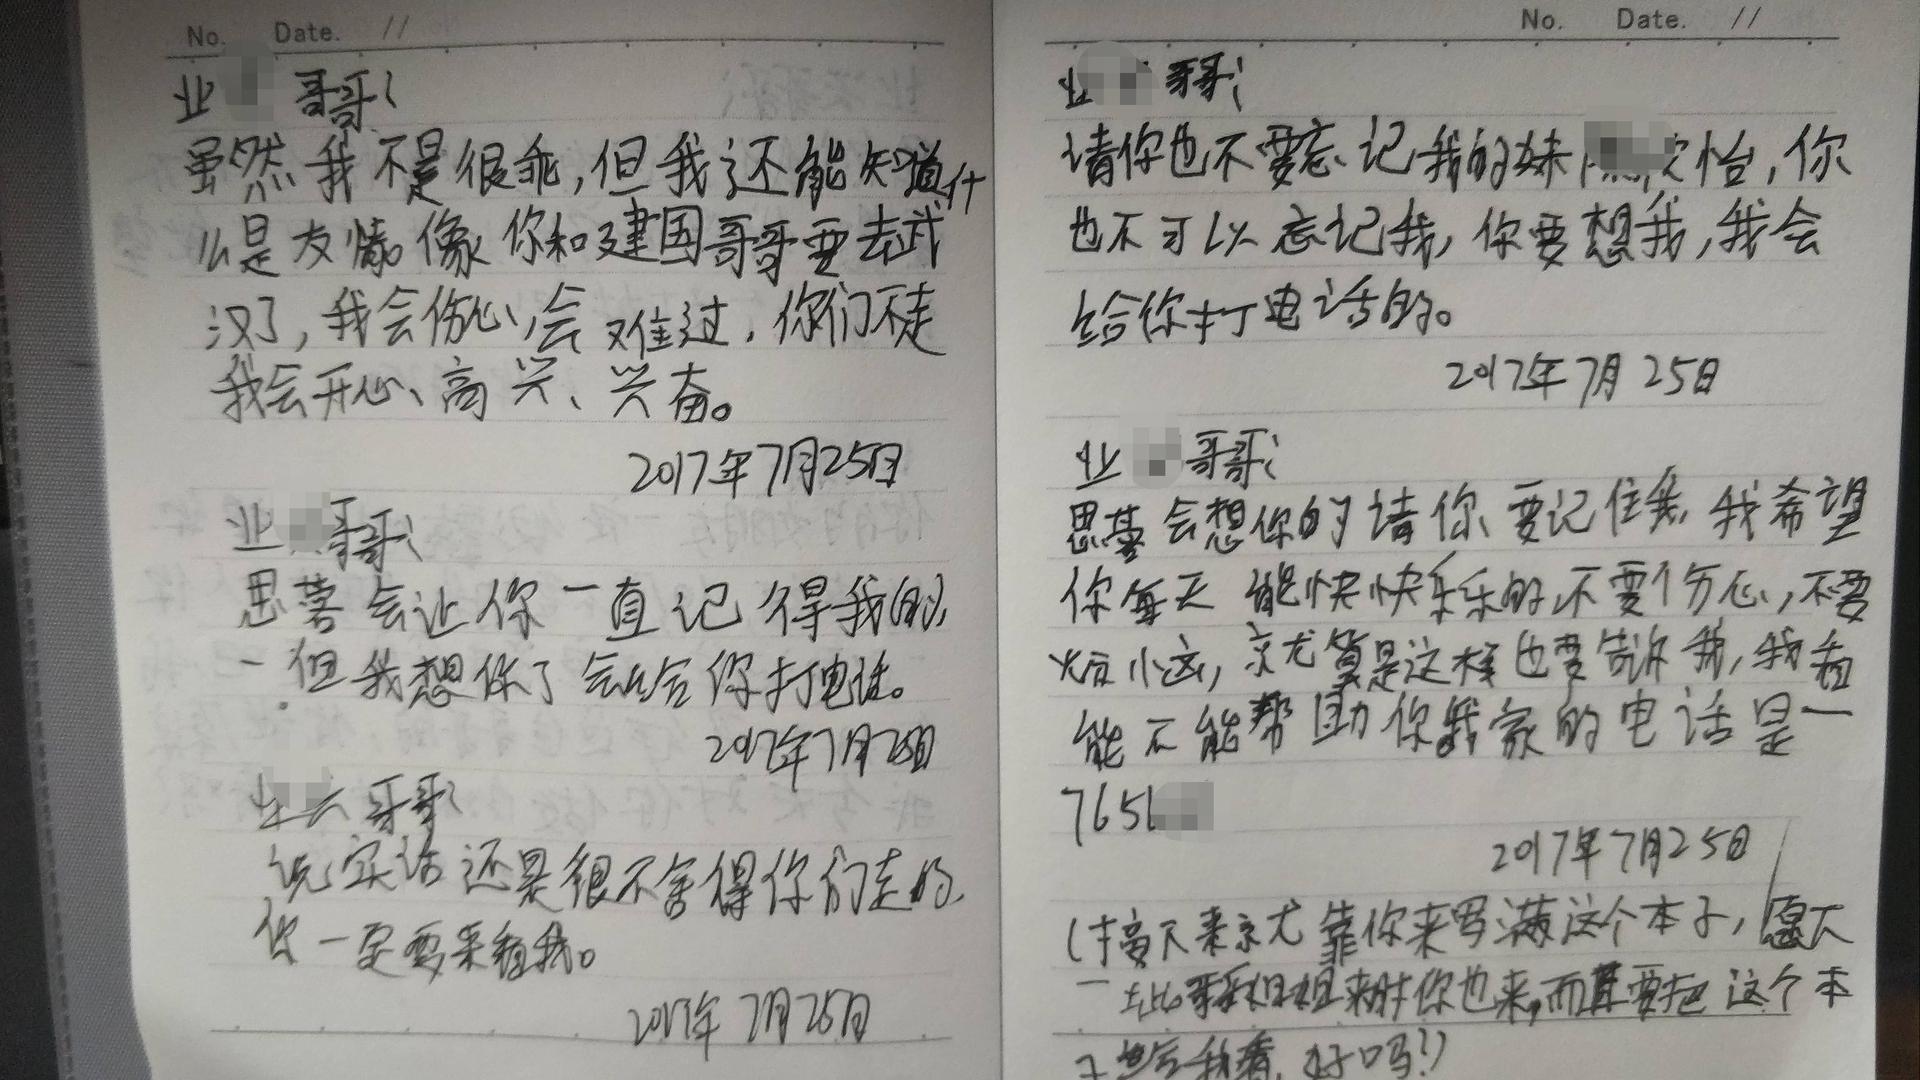 No. Date. //
业 哥哥:
虽然我不是很乖,但我还能知道什
么是友情。像你和建国哥哥要去武
汉了,我会伤心、会难过,你们不走
我会开心、高兴、兴奋。
2017年7月25日
业 哥哥:
思蓉会让你一直记得我的,
但我想你了会给你打电话。
2017年7月25日
业 哥哥:
说实话还是很不舍得你们走的,
你一定要来看我。
2017年7月25日
No. Date. //
业 哥哥:
请你也不要忘记我的妹 欣怡,你
也不可以忘记我,你要想我,我会
给你打电话的。
2017年7月25日
业 哥哥:
思蓉会想你的请你要记住我,我希望
你每天能快快乐乐的不要伤心,不要
小 ,就算是这样也要告诉我,我看
能不能帮助你我家的电话是一
765
2017年7月25日
(接下来就靠你来写满这个本子,愿下
一 哥哥姐姐来时你也来,而且要把这个本
子 给我看,好吗?)